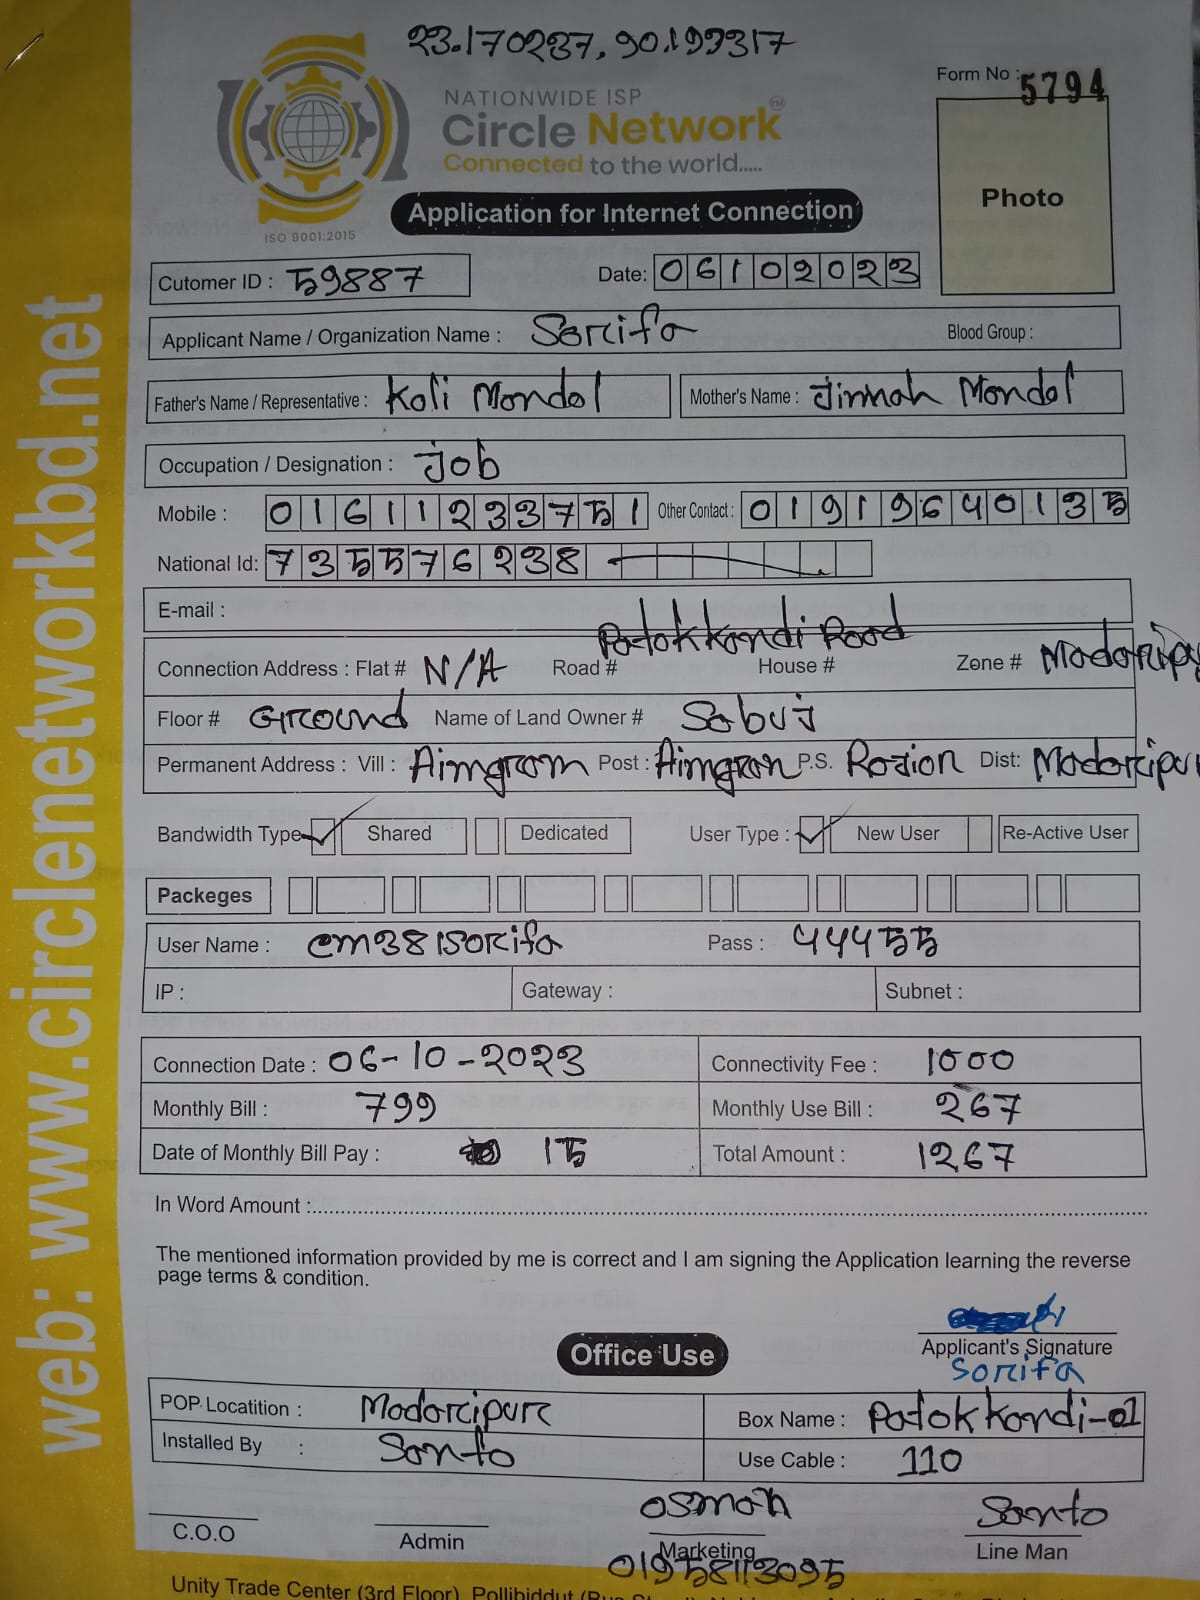 23.170237, 90.199317
Form No : 5794
NATIONWIDE ISP
Circle Network TM
Connected to the world.....
ISO 9001:2015
Application for Internet Connection
Photo
Cutomer ID : 59887 Date: 06102023
Applicant Name / Organization Name : Sorifa Blood Group :
Father's Name / Representative : Koli Mondol Mother's Name : Jinnah Mondol
Occupation / Designation : Job
Mobile : 01611233751 Other Contact : 01919640135
National Id: 7355576238
E-mail :
Connection Address : Flat # N/A Road # Patokkandi Road House # Zone # Madaripu
Floor # Ground Name of Land Owner # Sobuj
Permanent Address : Vill : Aimgram Post : Aimgram P.S. Rajion Dist: Madaripur
Bandwidth Type Shared Dedicated User Type : New User Re-Active User
Packeges
User Name : cm381sorifa Pass : 44455
IP : Gateway : Subnet :
Connection Date : 06-10-2023 Connectivity Fee : 1000
Monthly Bill : 799 Monthly Use Bill : 267
Date of Monthly Bill Pay : 15 Total Amount : 1267
In Word Amount :
The mentioned information provided by me is correct and I am signing the Application learning the reverse
page terms & condition.
Applicant's Signature
Sorifa
Office Use
POP Locatition : Madaripur Box Name : Patokkandi-01
Installed By : Santo Use Cable : 110
C.O.O Admin Osman Marketing Santo Line Man
01958113095
Unity Trade Center (3rd Floor), Pollibiddut
web: www.circlenetworkbd.net